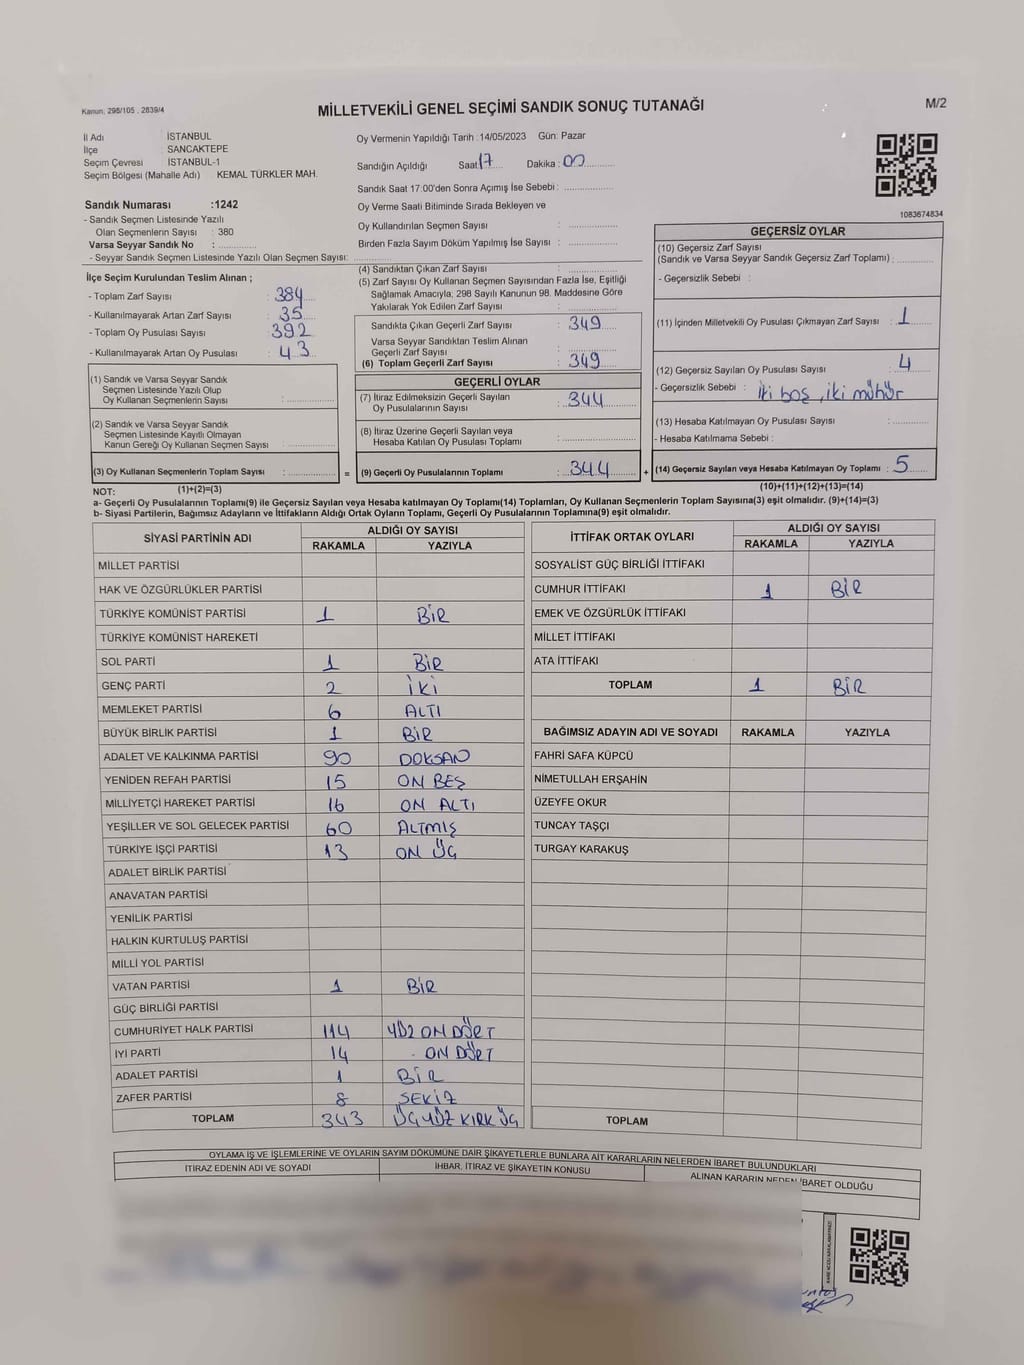 Kanun; 298/105 , 2839/4
MİLLETVEKİLİ GENEL SEÇİMİ SANDIK SONUÇ TUTANAĞI
M/2
İl Adı : İSTANBUL
İlçe : SANCAKTEPE
Seçim Çevresi : İSTANBUL-1
Seçim Bölgesi (Mahalle Adı) KEMAL TÜRKLER MAH.
Oy Vermenin Yapıldığı Tarih :14/05/2023 Gün: Pazar
Sandığın Açıldığı Saat: 17 Dakika : 00
Sandık Saat 17:00'den Sonra Açımış İse Sebebi :
Oy Verme Saati Bitiminde Sırada Bekleyen ve
Oy Kullandırılan Seçmen Sayısı :
Birden Fazla Sayım Döküm Yapılmış İse Sayısı :
1083674834
Sandık Numarası :1242
- Sandık Seçmen Listesinde Yazılı
Olan Seçmenlerin Sayısı : 380
Varsa Seyyar Sandık No :
- Seyyar Sandık Seçmen Listesinde Yazılı Olan Seçmen Sayısı:
İlçe Seçim Kurulundan Teslim Alınan ;
- Toplam Zarf Sayısı : 384
- Kullanılmayarak Artan Zarf Sayısı : 35
- Toplam Oy Pusulası Sayısı : 392
- Kullanılmayarak Artan Oy Pusulası : 43
(1) Sandık ve Varsa Seyyar Sandık
Seçmen Listesinde Yazılı Olup
Oy Kullanan Seçmenlerin Sayısı :
(2) Sandık ve Varsa Seyyar Sandık
Seçmen Listesinde Kayıtlı Olmayan
Kanun Gereği Oy Kullanan Seçmen Sayısı :
(3) Oy Kullanan Seçmenlerin Toplam Sayısı :
(4) Sandıktan Çıkan Zarf Sayısı :
(5) Zarf Sayısı Oy Kullanan Seçmen Sayısından Fazla İse, Eşitliği
Sağlamak Amacıyla; 298 Sayılı Kanunun 98. Maddesine Göre
Yakılarak Yok Edilen Zarf Sayısı :
Sandıkta Çıkan Geçerli Zarf Sayısı : 349
Varsa Seyyar Sandıktan Teslim Alınan
Geçerli Zarf Sayısı :
(6) Toplam Geçerli Zarf Sayısı : 349
GEÇERLİ OYLAR
(7) İtiraz Edilmeksizin Geçerli Sayılan
Oy Pusulalarının Sayısı : 344
(8) İtiraz Üzerine Geçerli Sayılan veya
Hesaba Katılan Oy Pusulası Toplamı :
= (9) Geçerli Oy Pusulalarının Toplamı : 344 +
GEÇERSİZ OYLAR
(10) Geçersiz Zarf Sayısı
(Sandık ve Varsa Seyyar Sandık Geçersiz Zarf Toplamı) :
- Geçersizlik Sebebi :
(11) İçinden Milletvekili Oy Pusulası Çıkmayan Zarf Sayısı : 1
(12) Geçersiz Sayılan Oy Pusulası Sayısı : 4
- Geçersizlik Sebebi : iki boş, iki mühür
(13) Hesaba Katılmayan Oy Pusulası Sayısı :
- Hesaba Katılmama Sebebi :
(14) Geçersiz Sayılan veya Hesaba Katılmayan Oy Toplamı : 5
NOT: (1)+(2)=(3)
(10)+(11)+(12)+(13)=(14)
a- Geçerli Oy Pusulalarının Toplamı(9) ile Geçersiz Sayılan veya Hesaba katılmayan Oy Toplamı(14) Toplamları, Oy Kullanan Seçmenlerin Toplam Sayısına(3) eşit olmalıdır. (9)+(14)=(3)
b- Siyasi Partilerin, Bağımsız Adayların ve İttifakların Aldığı Ortak Oyların Toplamı, Geçerli Oy Pusulalarının Toplamına(9) eşit olmalıdır.
SİYASİ PARTİNİN ADI ALDIĞI OY SAYISI
RAKAMLA YAZIYLA
MİLLET PARTİSİ
HAK VE ÖZGÜRLÜKLER PARTİSİ
TÜRKİYE KOMÜNİST PARTİSİ 1 BİR
TÜRKİYE KOMÜNİST HAREKETİ
SOL PARTİ 1 BİR
GENÇ PARTİ 2 İKİ
MEMLEKET PARTİSİ 6 ALTI
BÜYÜK BİRLİK PARTİSİ 1 BİR
ADALET VE KALKINMA PARTİSİ 90 DOKSAN
YENİDEN REFAH PARTİSİ 15 ON BEŞ
MİLLİYETÇİ HAREKET PARTİSİ 16 ON ALTI
YEŞİLLER VE SOL GELECEK PARTİSİ 60 ALTMIŞ
TÜRKİYE İŞÇİ PARTİSİ 13 ON ÜÇ
ADALET BİRLİK PARTİSİ
ANAVATAN PARTİSİ
YENİLİK PARTİSİ
HALKIN KURTULUŞ PARTİSİ
MİLLİ YOL PARTİSİ
VATAN PARTİSİ 1 BİR
GÜÇ BİRLİĞİ PARTİSİ
CUMHURİYET HALK PARTİSİ 114 YÜZ ON DÖRT
İYİ PARTİ 14 ON DÖRT
ADALET PARTİSİ 1 BİR
ZAFER PARTİSİ 8 SEKİZ
TOPLAM 343 ÜÇ YÜZ KIRK ÜÇ
İTTİFAK ORTAK OYLARI ALDIĞI OY SAYISI
RAKAMLA YAZIYLA
SOSYALİST GÜÇ BİRLİĞİ İTTİFAKI
CUMHUR İTTİFAKI 1 BİR
EMEK VE ÖZGÜRLÜK İTTİFAKI
MİLLET İTTİFAKI
ATA İTTİFAKI
TOPLAM 1 BİR
BAĞIMSIZ ADAYIN ADI VE SOYADI RAKAMLA YAZIYLA
FAHRİ SAFA KÜPCÜ
NİMETULLAH ERŞAHİN
ÜZEYFE OKUR
TUNCAY TAŞÇI
TURGAY KARAKUŞ
TOPLAM
OYLAMA İŞ VE İŞLEMLERİNE VE OYLARIN SAYIM DÖKÜMÜNE DAİR ŞİKAYETLERLE BUNLARA AİT KARARLARIN NELERDEN İBARET BULUNDUKLARI
İTİRAZ EDENİN ADI VE SOYADI İHBAR, İTİRAZ VE ŞİKAYETİN KONUSU ALINAN KARARIN NEDEN İBARET OLDUĞU